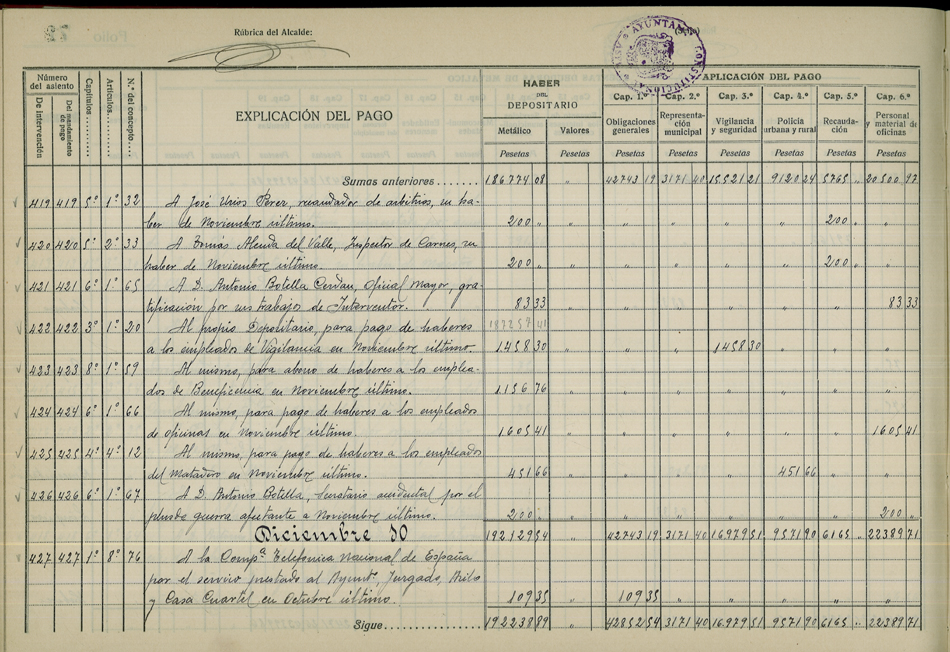 Rúbrica del Alcalde:
AYUNTAM CONSTITUCIONAL
Número del asiento
De intervención
Del mandamiento de pago
Capítulos
Artículos
N.º del concepto
EXPLICACIÓN DEL PAGO
HABER
DEPOSITARIO
Metálico Valores
Pesetas Pesetas
APLICACIÓN DEL PAGO
Cap. 1.º Cap. 2.º Cap. 3.º Cap. 4.º Cap. 5.º Cap. 6.º
Obligaciones generales Representación municipal Vigilancia y seguridad Policía urbana y rural Recaudación Personal y material de oficinas
Pesetas Pesetas Pesetas Pesetas Pesetas Pesetas
Sumas anteriores....... 186774 08 " 42743 19 3171 40 15521 21 9120 24 5765 " 20500 97
419 419 5º 1º 32 A José Urios Perez, recaudador de arbitrios, su ha-
ber de Noviembre último. 200 " " " " " " 200 " "
420 420 5º 2º 33 A Tomas Alenda del Valle, Inspector de Carnes, su
haber de Noviembre último. 200 " " " " " " 200 " "
421 421 6º 1º 65 A D. Antonio Botella Cerdan, Oficial Mayor, gra-
tificación por sus trabajos de Interventor. 83 33 " " " " " " 83 33
422 422 3º 1º 20 Al propio Depositario, para pago de haberes 187257 41
a los empleados de Vigilancia en Noviembre último. 1458 30 " " " 1458 30 " " "
423 423 8º 1º 59 Al mismo, para abono de haberes a los emplea-
dos de Beneficencia en Noviembre último. 1156 76 " " " " " " "
424 424 6º 1º 66 Al mismo, para pago de haberes a los empleados
de oficinas en Noviembre último. 1605 41 " " " " " " 1605 41
425 425 4º 4º 12 Al mismo, para pago de haberes a los empleados
del Matadero en Noviembre último. 451 66 " " " " 451 66 " "
426 426 6º 1º 67 A D. Antonio Botella, Secretario accidental por el
plus de guerra afectante a Noviembre último. 200 " " " " " " " 200 "
Diciembre 10 192129 54 42743 19 3171 40 16979 51 9571 90 6165 " 22389 71
427 427 1º 8º 76 A la Compª Telefonica Nacional de España
por el servicio prestado al Ayuntº, Juzgado,
y Casa Cuartel en Octubre último. 109 35 " 109 35 " " " " "
Sigue................ 192238 89 " 42852 54 3171 40 16979 51 9571 90 6165 " 22389 71